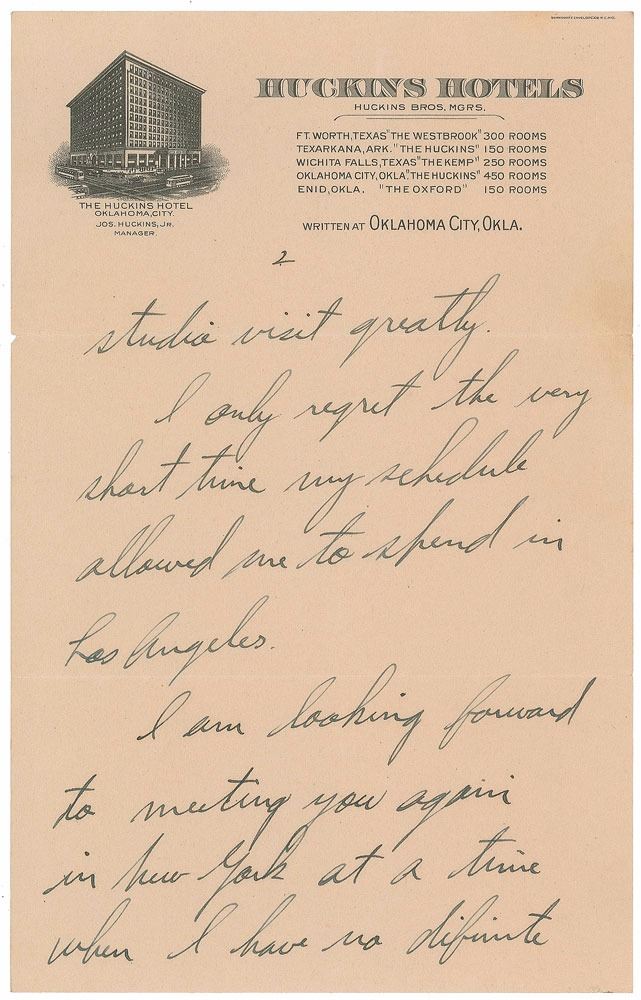 HUCKINS HOTELS
HUCKINS BROS. MGRS.
FT. WORTH, TEXAS "THE WESTBROOK" 300 ROOMS
TEXARKANA, ARK. "THE HUCKINS" 150 ROOMS
WICHITA FALLS, TEXAS "THE KEMP" 250 ROOMS
OKLAHOMA CITY, OKLA. "THE HUCKINS" 450 ROOMS
ENID, OKLA. "THE OXFORD" 150 ROOMS
THE HUCKINS HOTEL
OKLAHOMA, CITY.
JOS. HUCKINS, JR.
MANAGER.
WRITTEN AT OKLAHOMA CITY, OKLA.
2
studio visit greatly.
I only regret the very
short time my schedule
allowed me to spend in
Los Angeles.
I am looking forward
to meeting you again
in New York at a time
when I have no difinite